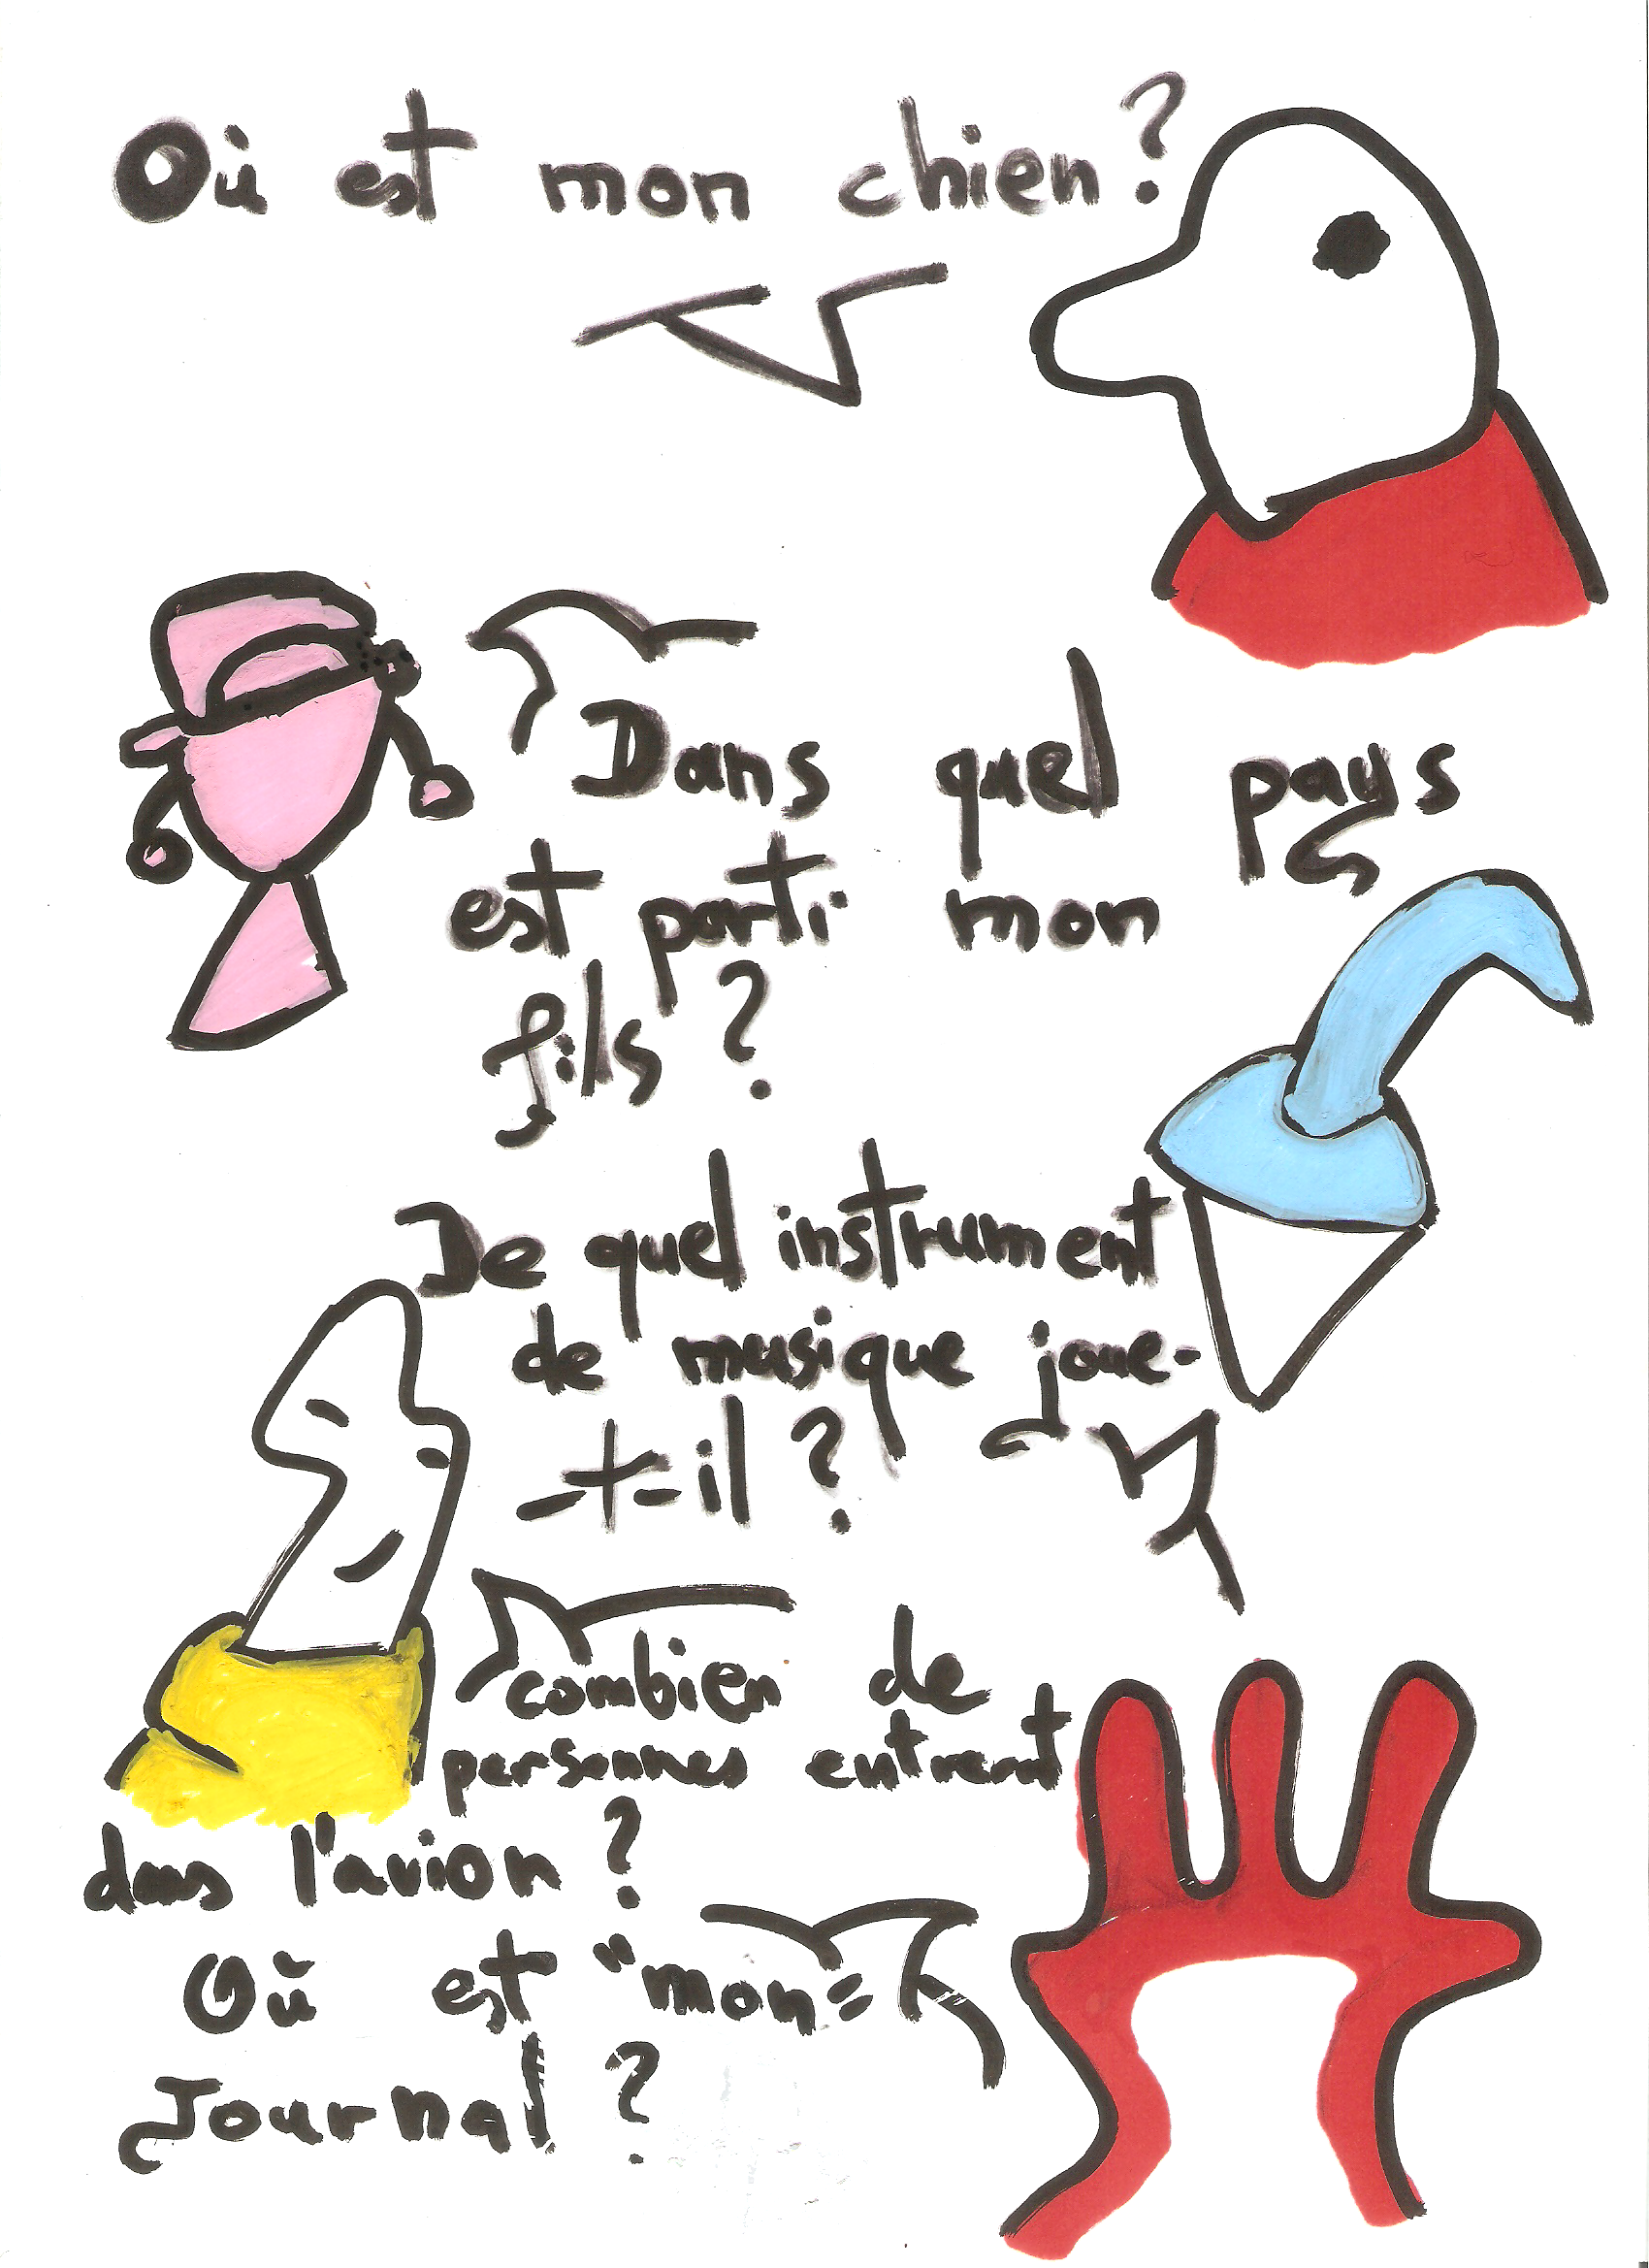 Où est mon chien ?
Dans quel pays
est parti mon
fils ?
De quel instrument
de musique joue-
-t-il ?
combien de
personnes entrent
dans l'avion ?
Où est "mon"
Journal ?